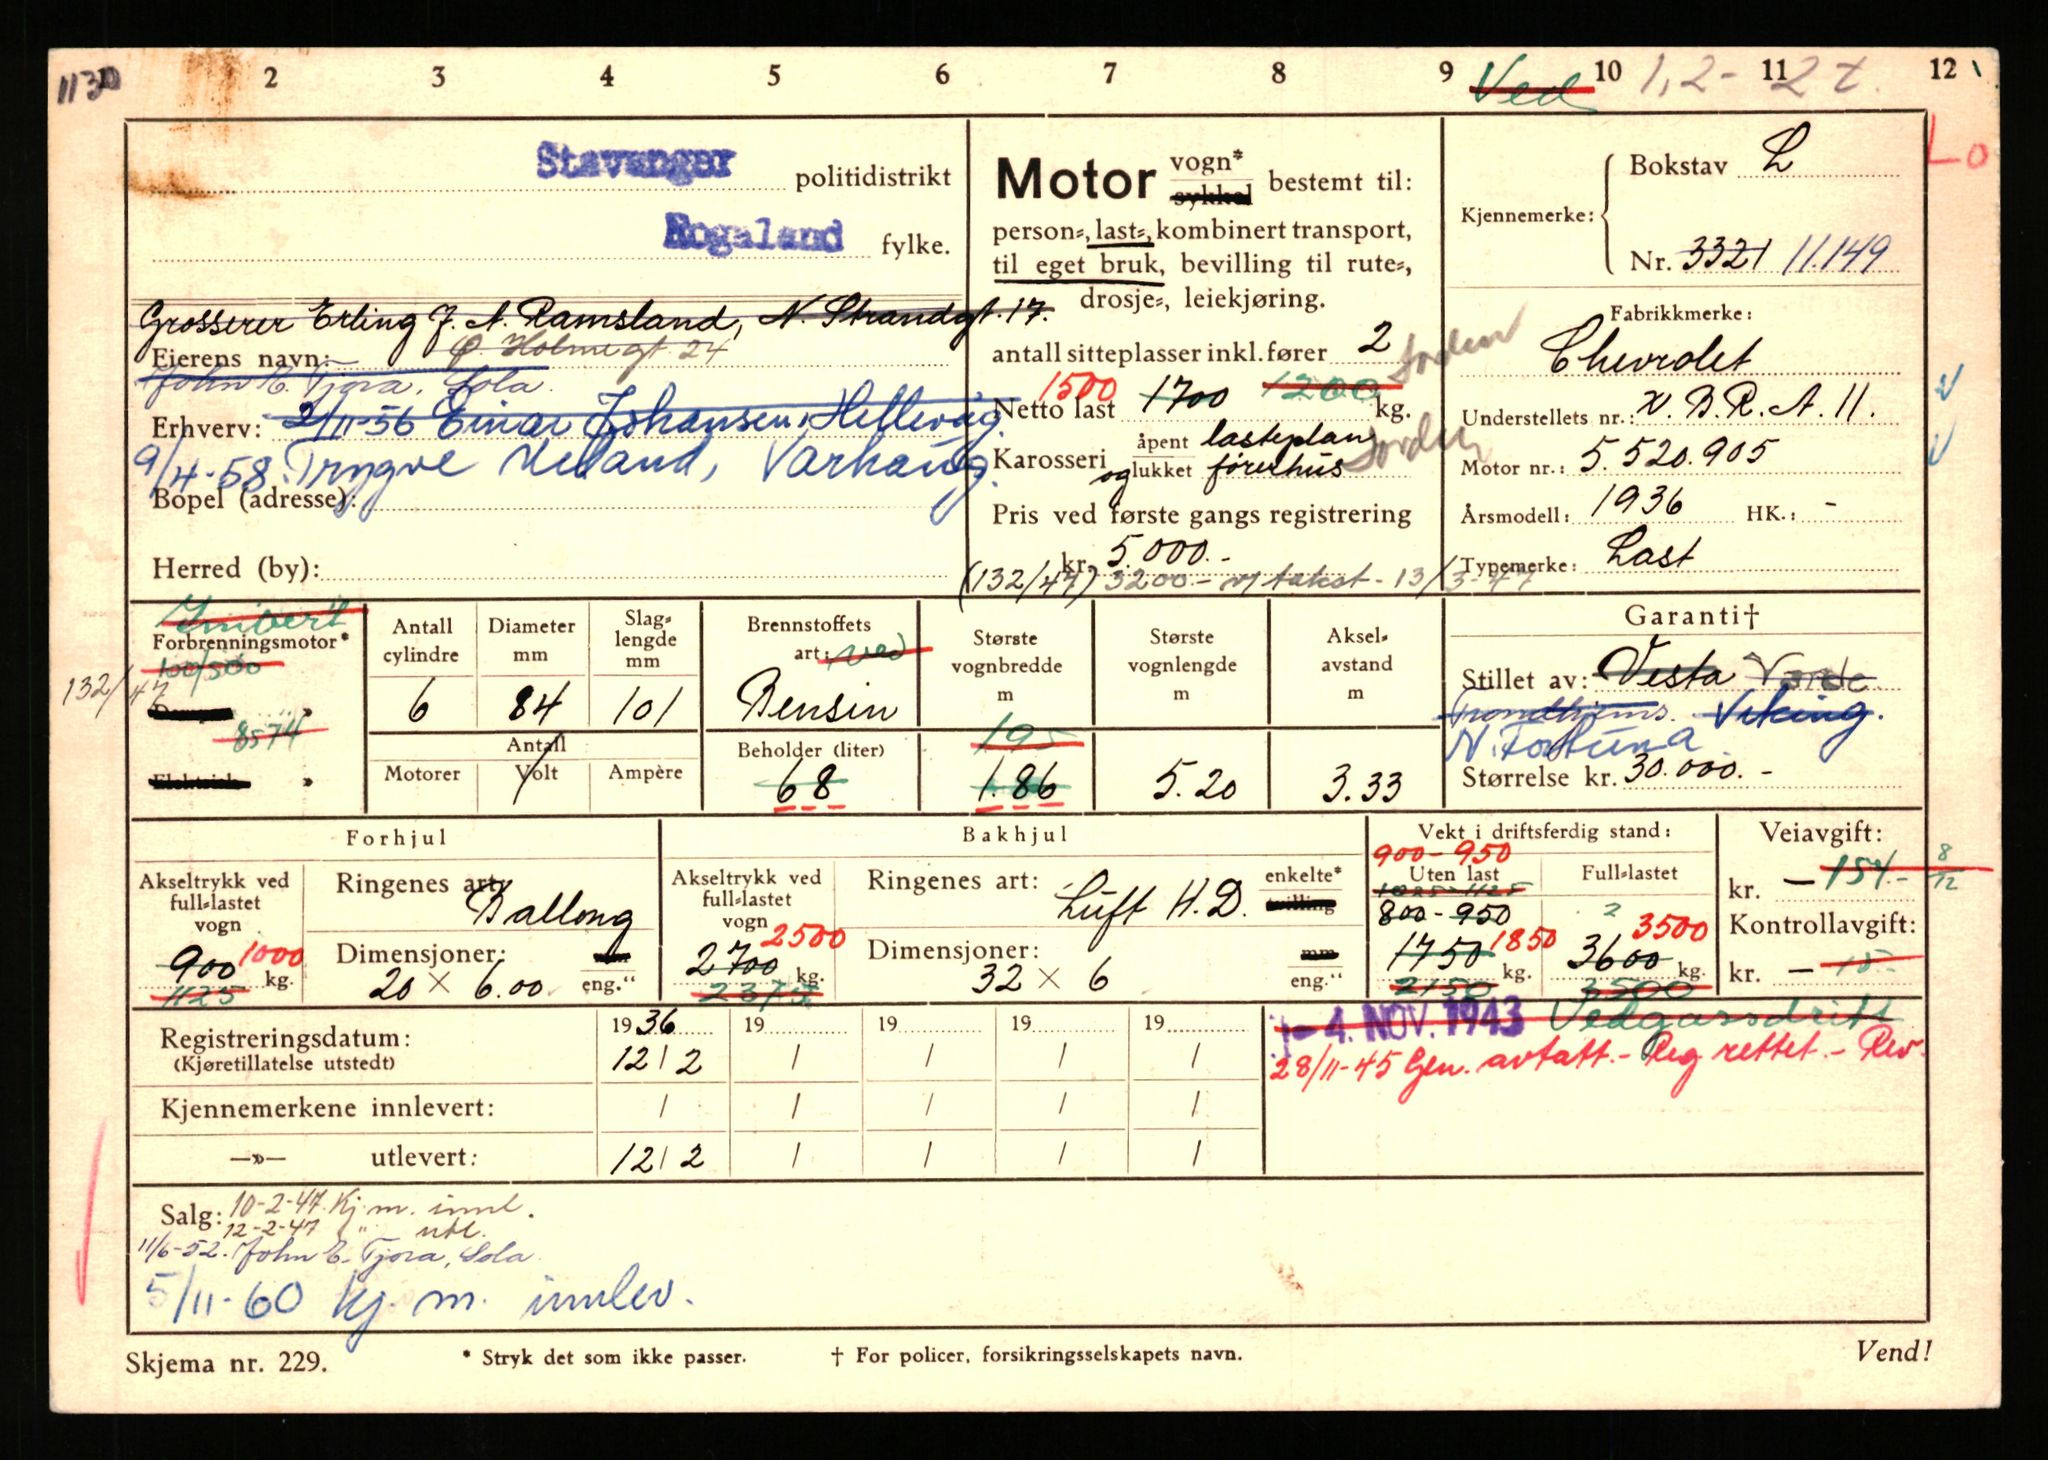 1130 2 3 4 5 6 7 8 9 10 11 12
Ved 1,2 - 2 t.
Lo
Stavanger politidistrikt
Rogaland fylke.
Grosserer Erling J. A. Ramsland, N. Strandgt. 17.
Ø. Holmegt. 24
Eierens navn:
John E. Tjora, Sola.
Erhverv: 2/11-56 Einar Johansen, Hellevåg.
9/4-58. Trygve Ueland, Varhaug.
Bopel (adresse):
Herred (by):
Motor vogn* sykkel bestemt til:
person-, last-, kombinert transport,
til eget bruk, bevilling til rute-,
drosje-, leiekjøring.
antall sitteplasser inkl. fører 2
Netto last 1500 1700 1200 kg.
Karosseri åpent lasteplan
og lukket førerhus
Pris ved første gangs registrering
kr. 5.000.-
(132/47) 3200.- v/ takst - 13/3-47
Kjennemerke: Bokstav L
Nr. 3321 11.149
Fabrikkmerke:
Chevrolet
Understellets nr.: V.B.R.A. 11.
Motor nr.: 5.520.905
Årsmodell: 1936 HK.: -
Typemerke: Last
Imbert
Forbrenningsmotor*
100/500
132/47
8574
Antall cylindre 6
Diameter mm 84
Slaglengde mm 101
Antall
Motorer Volt Ampère
Brennstoffets art: ved
Bensin
Beholder (liter)
68
Største vognbredde m
195
1.86
Største vognlengde m
5.20
Akselavstand m
3.33
Garanti†
Stillet av: Vesta Varde
Trondhjems. Viking.
N. Fortuna
Størrelse kr. 30.000.-
Forhjul
Akseltrykk ved full-lastet vogn
900 1000 kg.
1125
Ringenes art: Ballong
Dimensjoner: mm
20 × 6.00 eng.“
Bakhjul
Akseltrykk ved full-lastet vogn
2500
2700 kg.
2375
Ringenes art: Luft H.D. enkelte* tvilling
Dimensjoner: mm
32 × 6 eng.“
Vekt i driftsferdig stand:
900 - 950
Uten last Full-lastet
1025 - 1125
800 - 950
1750 1850 kg. 3600 3500 kg.
2150 3500
Veiavgift:
kr. - 154.- 8/12
Kontrollavgift:
kr. - 15.-
Registreringsdatum: 1936 19 19 19 19
(Kjøretillatelse utstedt) 12/2 / / / /
Kjennemerkene innlevert: / / / / /
—»— utlevert: 12/2 / / / /
- 4. NOV. 1943 Vedgassdrift
28/11-45 Gen. avtatt. - Reg rettet. - Rev.
Salg: 10-2-47. Kj. m. innl.
12-2-47 " utl.
11/6-52. John E. Tjora, Sola.
5/11-60 kj. m. innlev.
Skjema nr. 229. * Stryk det som ikke passer. † For policer, forsikringsselskapets navn. Vend!